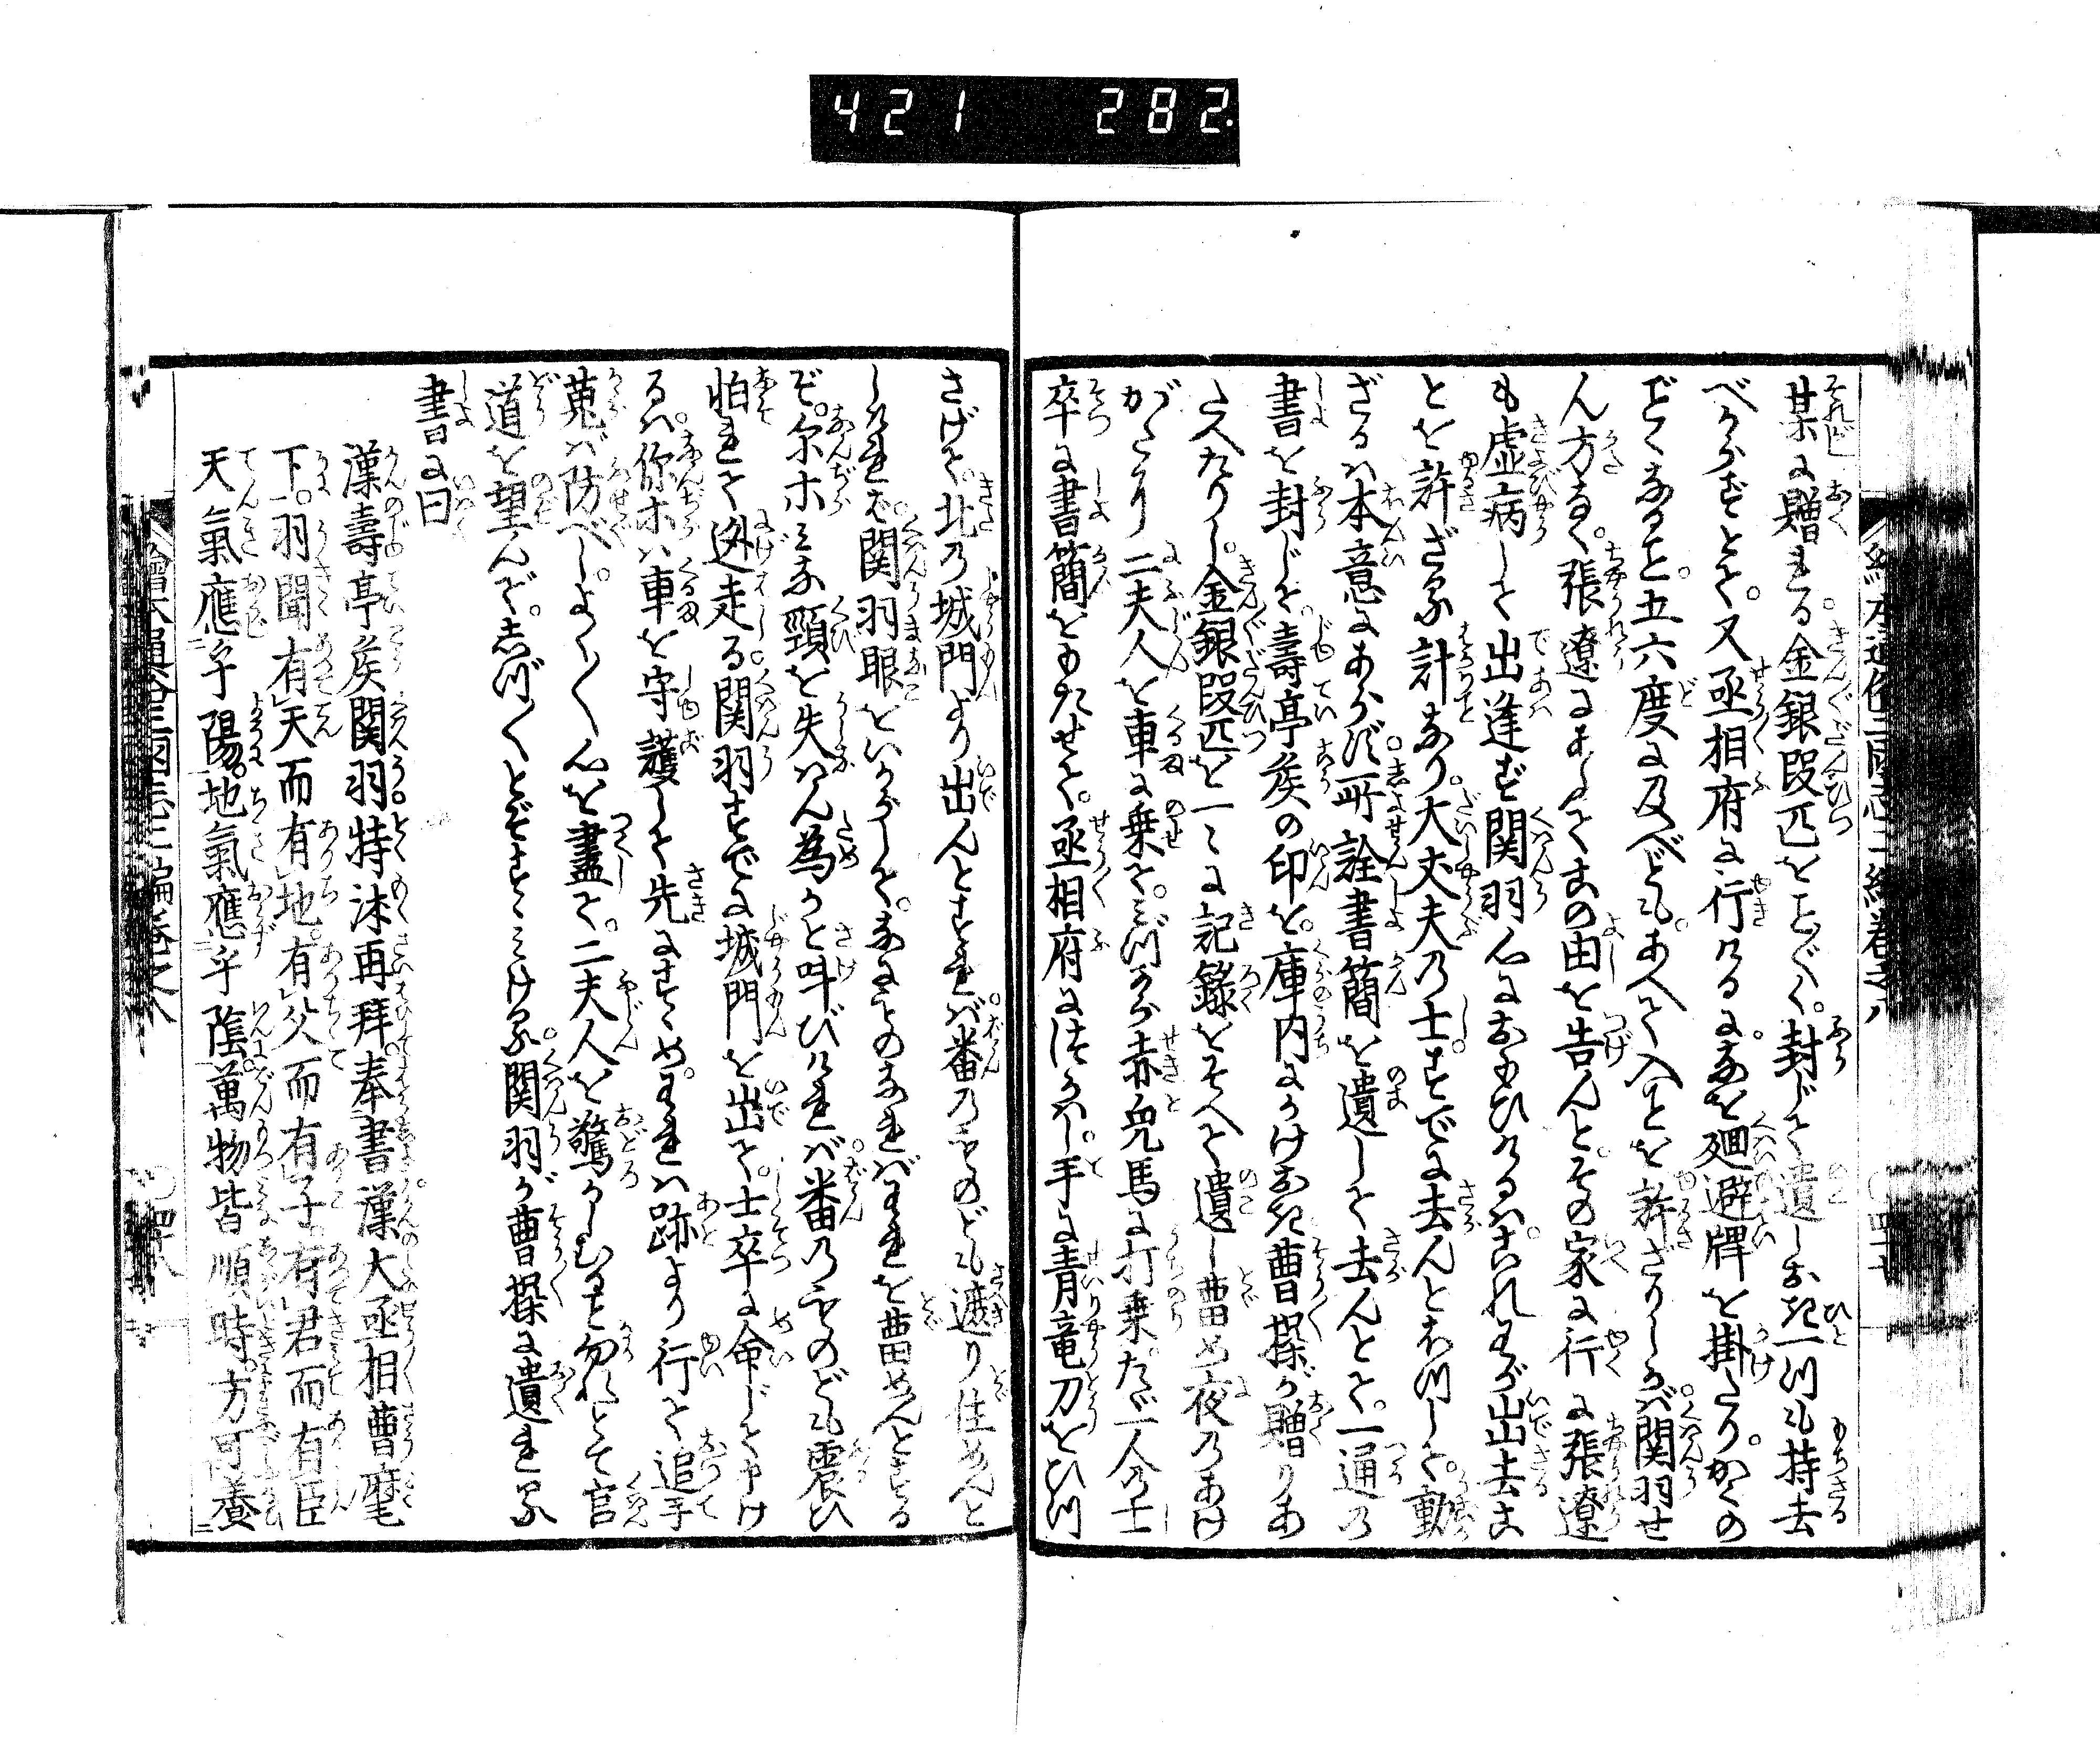 421 282
繪本通俗三國志二編卷之八
某に贈れる。金銀段匹をことごとく。封じて遺しおき一つも持去
べからずとて。又丞相府に行けるに。なを廻避牌を掛たり。かくの
ごとくなること。五六度に及べども。あへて入ことを許ざりしかば。関羽せ
ん方なく。張遼にあふてこの由を告んと。その家に行に張遼
も虚病して出逢ず関羽心におもひけるは。これわが出去こ
とを許ざる計なり。大丈夫の士。すでに去んとおつして。動
ざるは本意にあらず。所詮書簡を遺して去んとて。一通の
書を封じて。壽亭侯の印を。庫内にかけおき曹操が贈りあ
たへたりし。金銀段匹を一々に記録をそへて遺し畱め夜のあけ
がたり二夫人を車に乗て。みづから赤兎馬に打乗。たゞ一人の士
卒に書簡をもたせて。丞相府につかはし。手に青竜刀をひつ
さげて。北の城門より出んとすれば。番のものども遮り住めんと
しければ。関羽眼をいからして。なにものなればわれを畱めんとする
ぞ。尓ホみな頸を失はん為かと呌びければ。番のものども震ひ
怕れて迯走る。関羽すでに城門を出て。士卒に命じて申け
るは。你ホは車を守護して先にすゝめ。われは跡より行て追手
蒐ば防べし。よく〳〵心を盡て。二夫人を驚かしむること勿れとて官
道を望んで。しづ〳〵とぞすゝみける。関羽が曹操に遺れる
書に曰
漢壽亭侯関羽。特沐再拜。奉書漢大丞相曹麾
下。羽聞有天而有地。有父而有子。有君而有臣
天氣應乎陽。地氣應乎陰。萬物皆順時。方可養
繪本通俗三國志二編卷之八